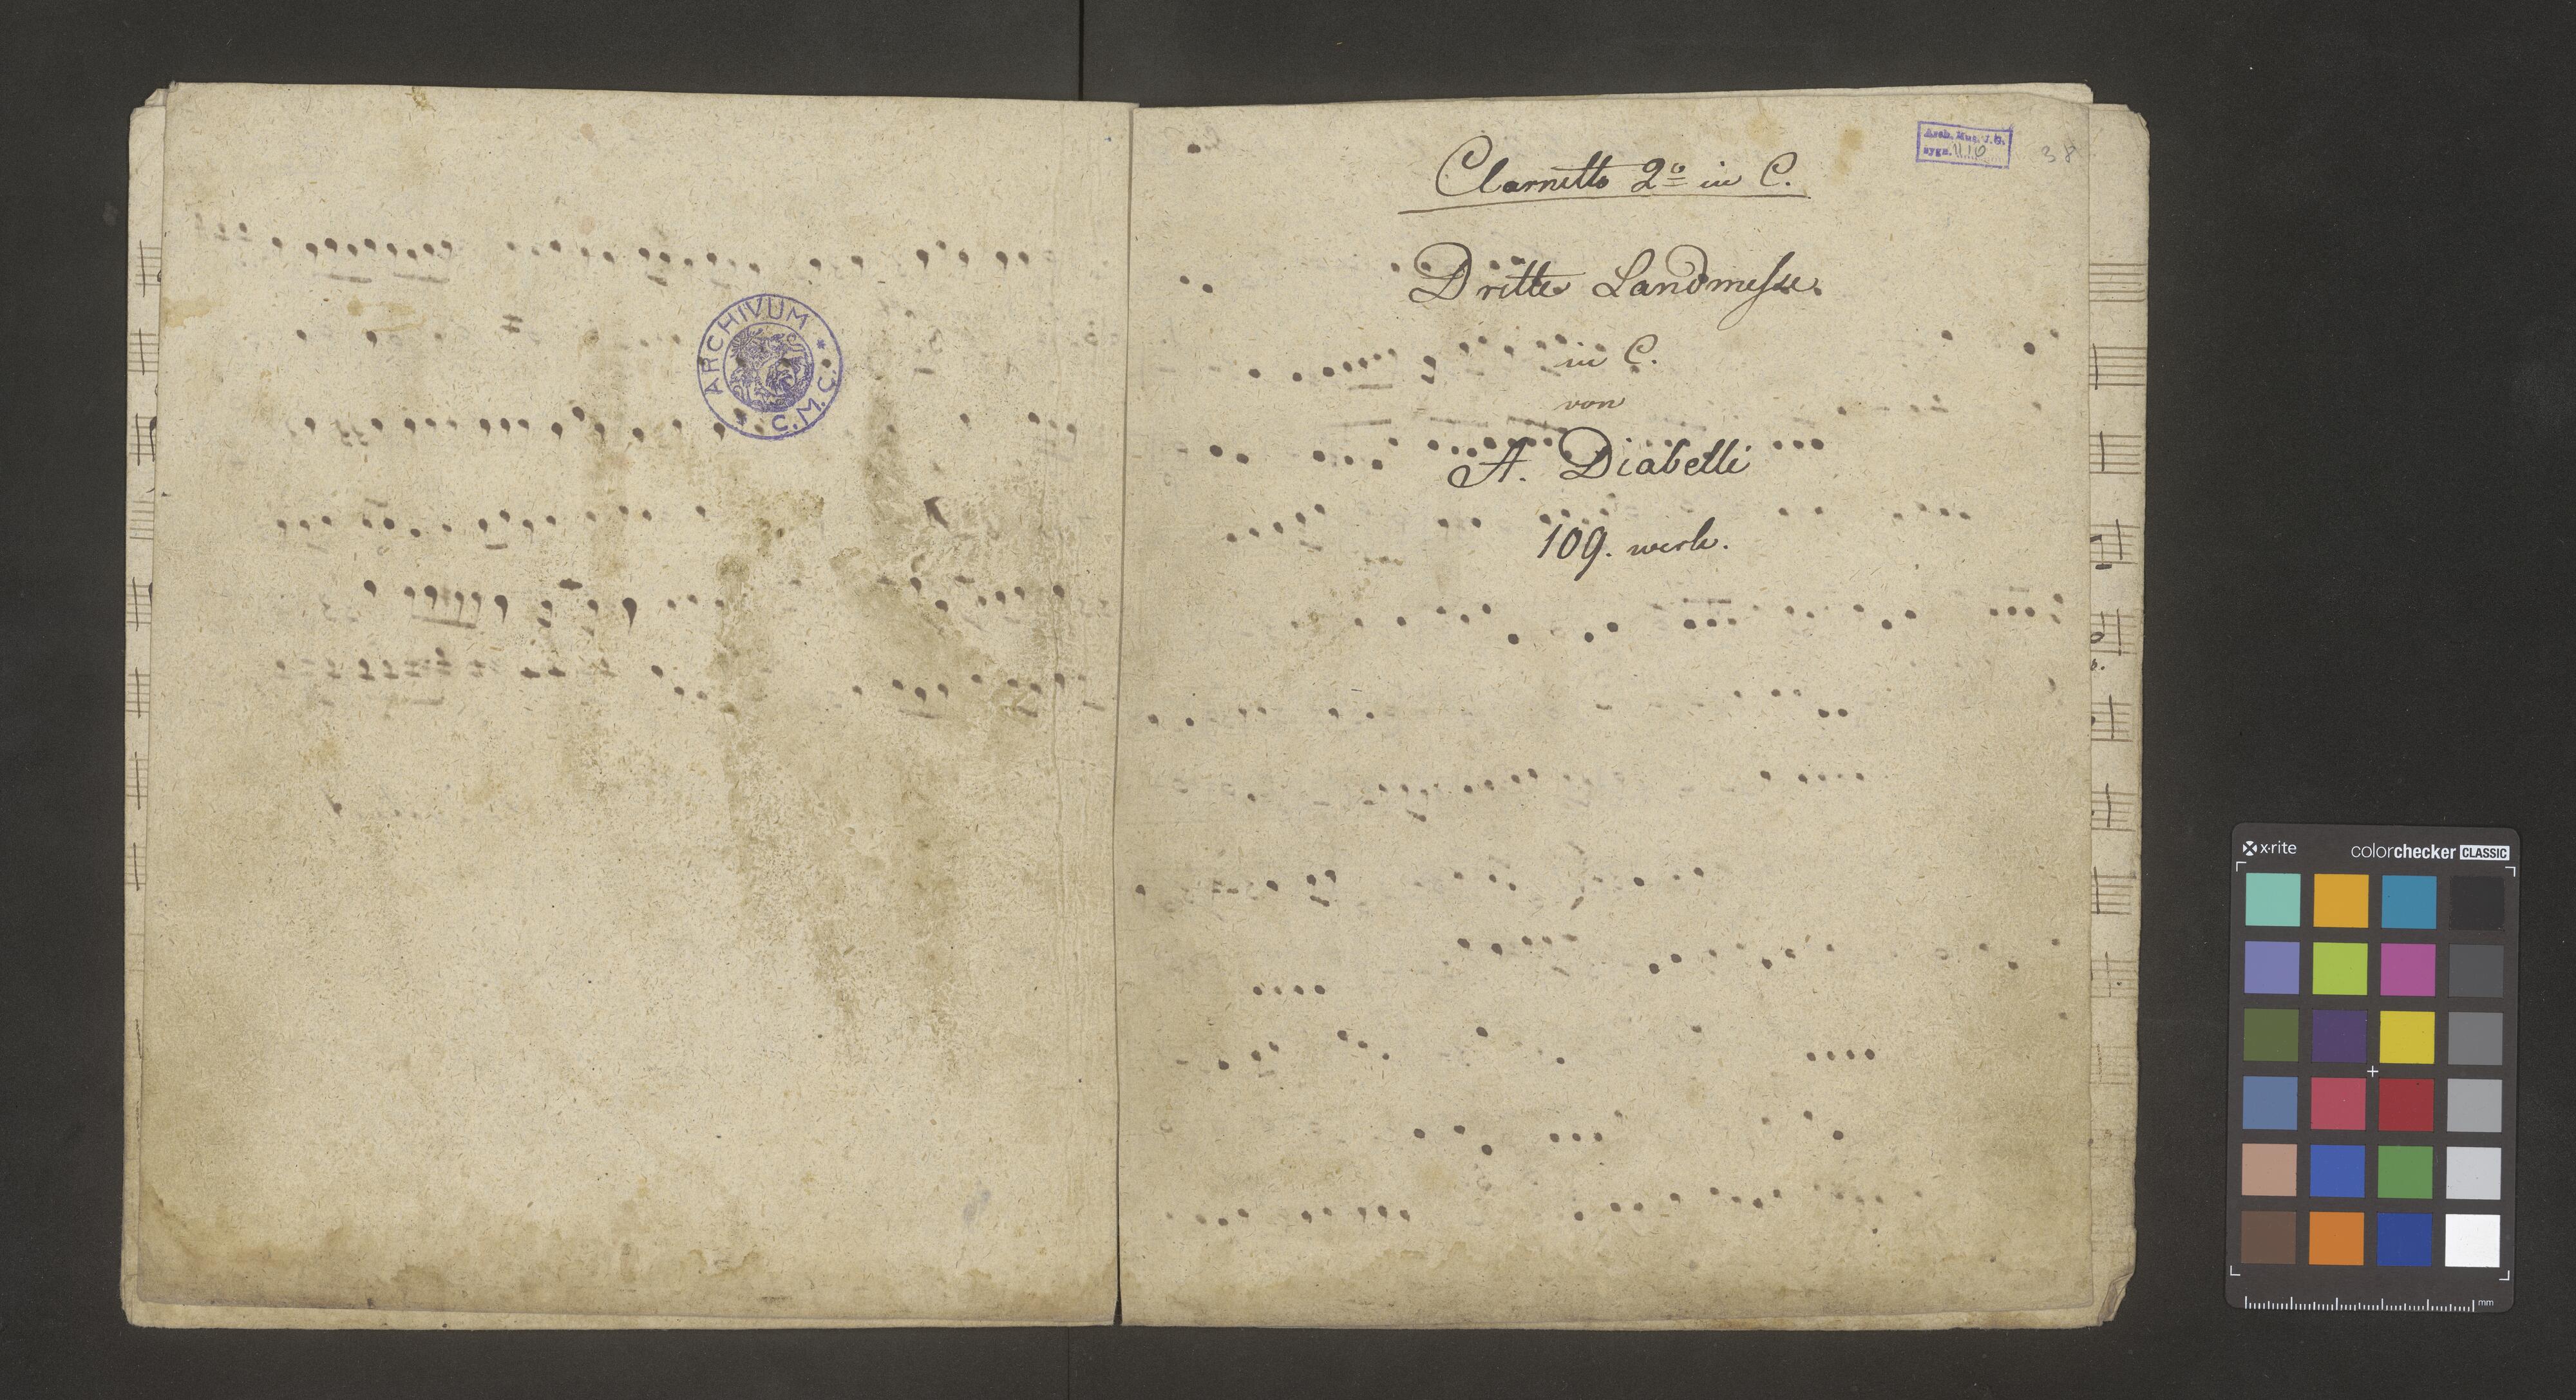 ARCHIVUM * C.M.C. *
Arch. Mus. J.G.
sygn. 1110
38
Clarnetto 2º in C.
Dritte Landmeſse.
in C.
von
A. Diabelli
109. werk.
x·rite
colorchecker CLASSIC
mm